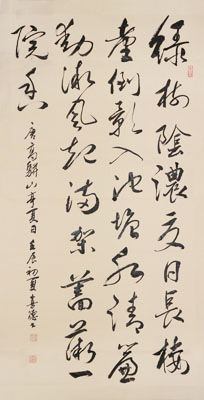 綠樹陰濃夏日長樓
臺倒影入池塘水精簾
動微風起滿架薔薇一
院香
唐高駢山亭夏日 壬辰初夏喜德